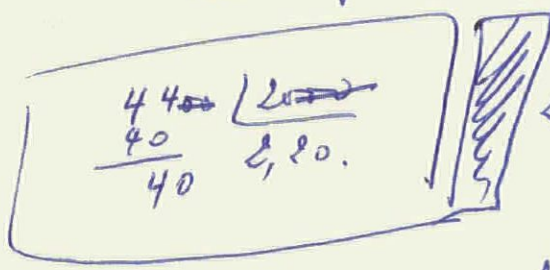 44 20
40 2,20.
40